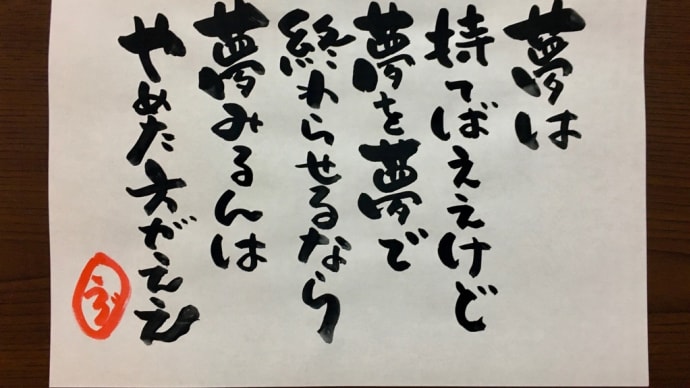 夢は
持てばええけど
夢を夢で
終わらせるなら
夢みるんは
やめた方がええ